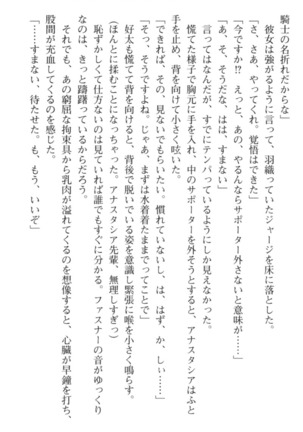 騎士の名折れだからな」
　彼女は強がるように言って、羽織っていたジャージを床に落とした。
「さ、さあ、やってくれ。覚悟はできた」
「今ですか!?　えっと、あの、やるんならサポーター外さないと意味が……」
「あ、そ、そうだな。はは、すまない」
　言ってはなんだが、すでにテンパっているようにしか見えなかった。
　慌てた様子で胸元に手を入れ、中のサポーターを外そうとすると、アナスタシアはふと
手を止め、背を向けて小さく呟いた。
「できれば、その、見ないでもらいたい。慣れていないし、は、はず、か、しぃ……」
「そっ、そうですよね。じゃあ、まずは水着着たままでってことで」
　好太も慌てて背を向けると、背後で脱いでいる姿を意識し緊張に喉を小さく鳴らす。
（ほんとに揉むことになっちゃった。アナスタシア先輩、無理しすぎっ）
　恥ずかしくて仕方ないのは見ていれば誰でもすぐに分かる。ファスナーの音がゆっくり
なのは、きっと躊躇っているからだろう。
　それでも、あの窮屈な拘束具から乳肉が溢れてくるのを想像すると、心臓が早鐘を打ち、
股間が充血してくるのを感じた。
「……すまない、待たせた。も、もう、いいぞ」